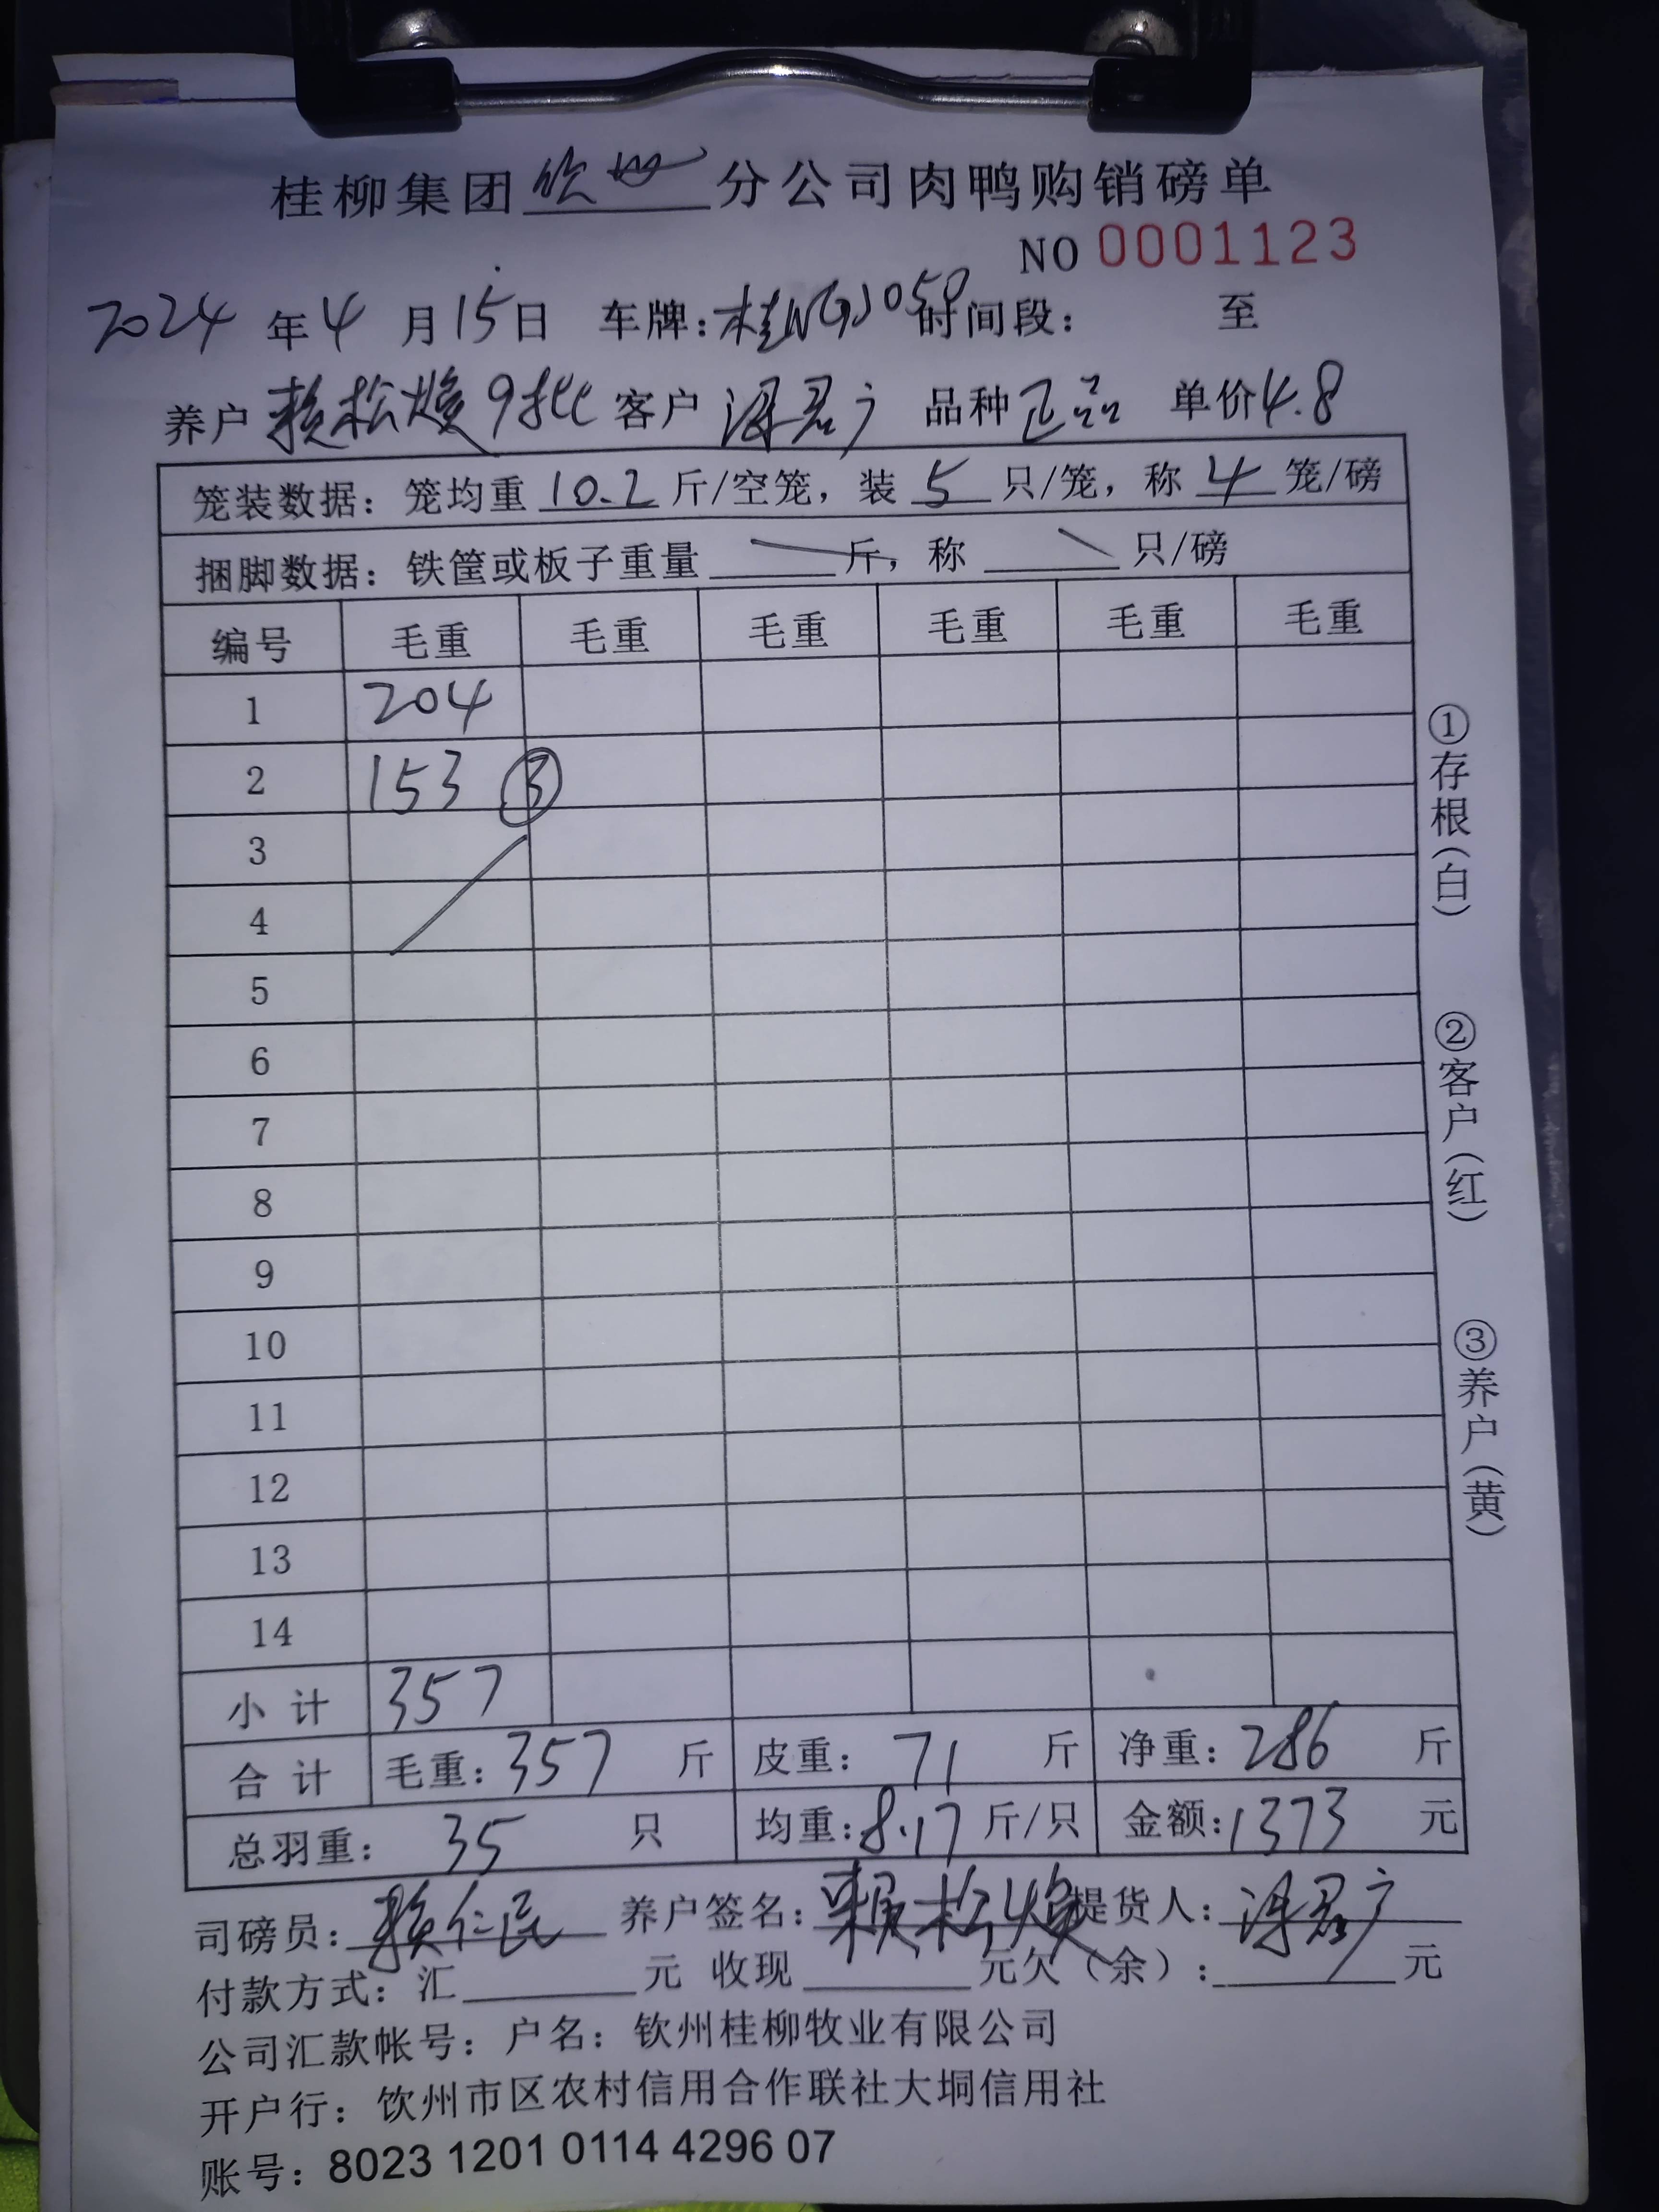 桂柳集团钦州分公司肉鸭购销磅单
NO 0001123
2024年4月15日 车牌:桂NGJ050 时间段: 至
养户 赖松焕9批 客户 译君广 品种 正品 单价4.8
笼装数据:笼均重 10.2 斤/空笼,装 5 只/笼,称 4 笼/磅
捆脚数据:铁筐或板子重量 斤,称 只/磅
编号 毛重 毛重 毛重 毛重 毛重 毛重
1 204
2 153 ③
3
4
5
6
7
8
9
10
11
12
13
14
小计 357
合计 毛重:357 斤 皮重:71 斤 净重:286 斤
总羽重:35 只 均重:8.17 斤/只 金额:1373 元
司磅员:赖仁民 养户签名:赖松焕 提货人:君广
付款方式:汇 元 收现 元欠(余): 元
公司汇款帐号:户名:钦州桂柳牧业有限公司
开户行:钦州市区农村信用合作联社大垌信用社
账号:8023 1201 0114 4296 07
①存根(白)
②客户(红)
③养户(黄)